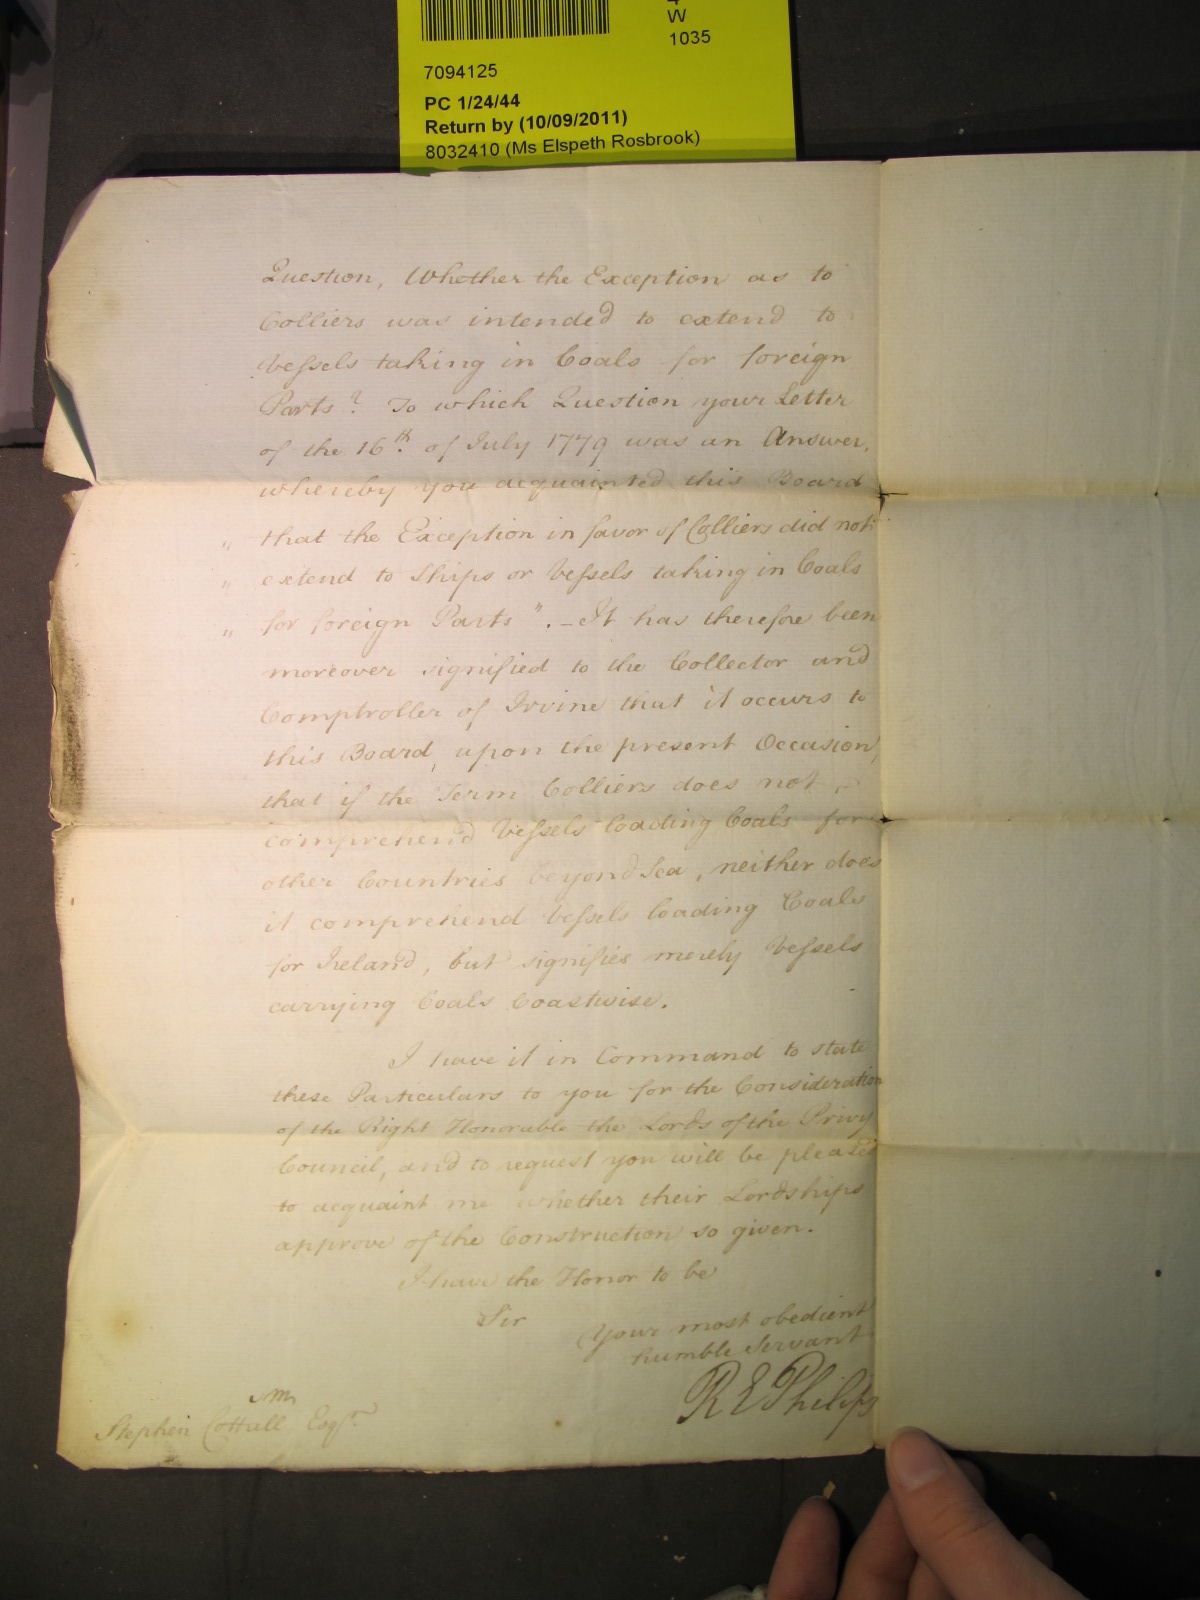 4
W
1035
7094125
PC 1/24/44
Return by (10/09/2011)
8032410 (Ms Elspeth Rosbrook)
Question, Whether the Exception as to
Colliers was intended to extend to
Vessels taking in Coals for foreign
Parts? To which Question your Letter
of the 16th. of July 1779 was an Answer,
whereby you acquainted this Board
„ that the Exception in favor of Colliers did not
„ extend to Ships or Vessels taking in Coals
„ for foreign Parts". – It has therefore been
moreover signified to the Collector and
Comptroller of Irvine that it occurs to
this Board, upon the present Occasion,
that if the Term Colliers does not
comprehend Vessels loading Coals for
other Countries beyond Sea, neither does
it comprehend Vessels loading Coals
for Ireland, but signifies merely Vessels
carrying Coals Coastwise.
I have it in Command to state
these Particulars to you for the Consideration
of the Right Honorable the Lords of the Privy
Council, and to request you will be pleased
to acquaint me whether their Lordships
approve of the Construction so given.
I have the Honor to be
Sir
Your most obedient
humble Servant
R E Philips
Stephen Cottrell Esqr.